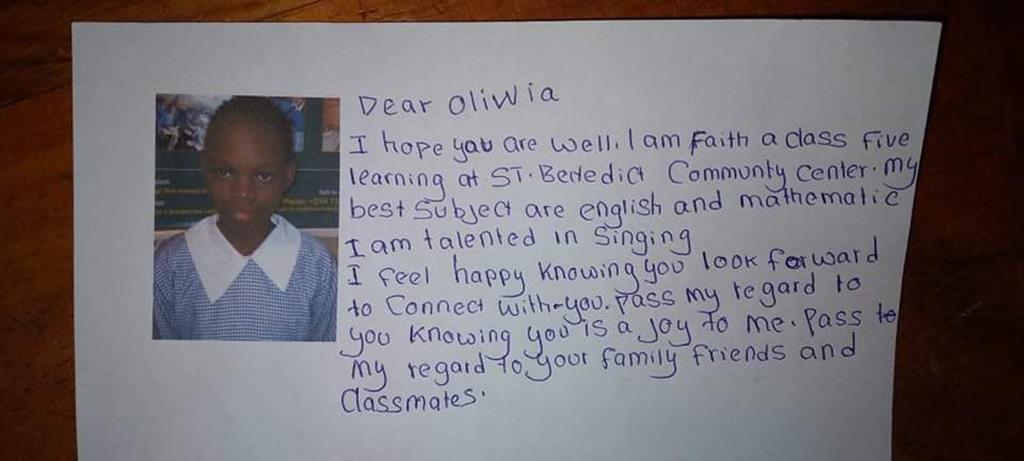 Dear oliwia
I hope you are well. I am Faith a class five
learning at ST. Benedict Communty Center. my
best Subject are english and mathematic
I am talented in Singing
I feel happy knowing you look forward
to Connect with-you. pass my regard to
you knowing you is a joy to me. Pass to
my regard to your family friends and
Classmates.